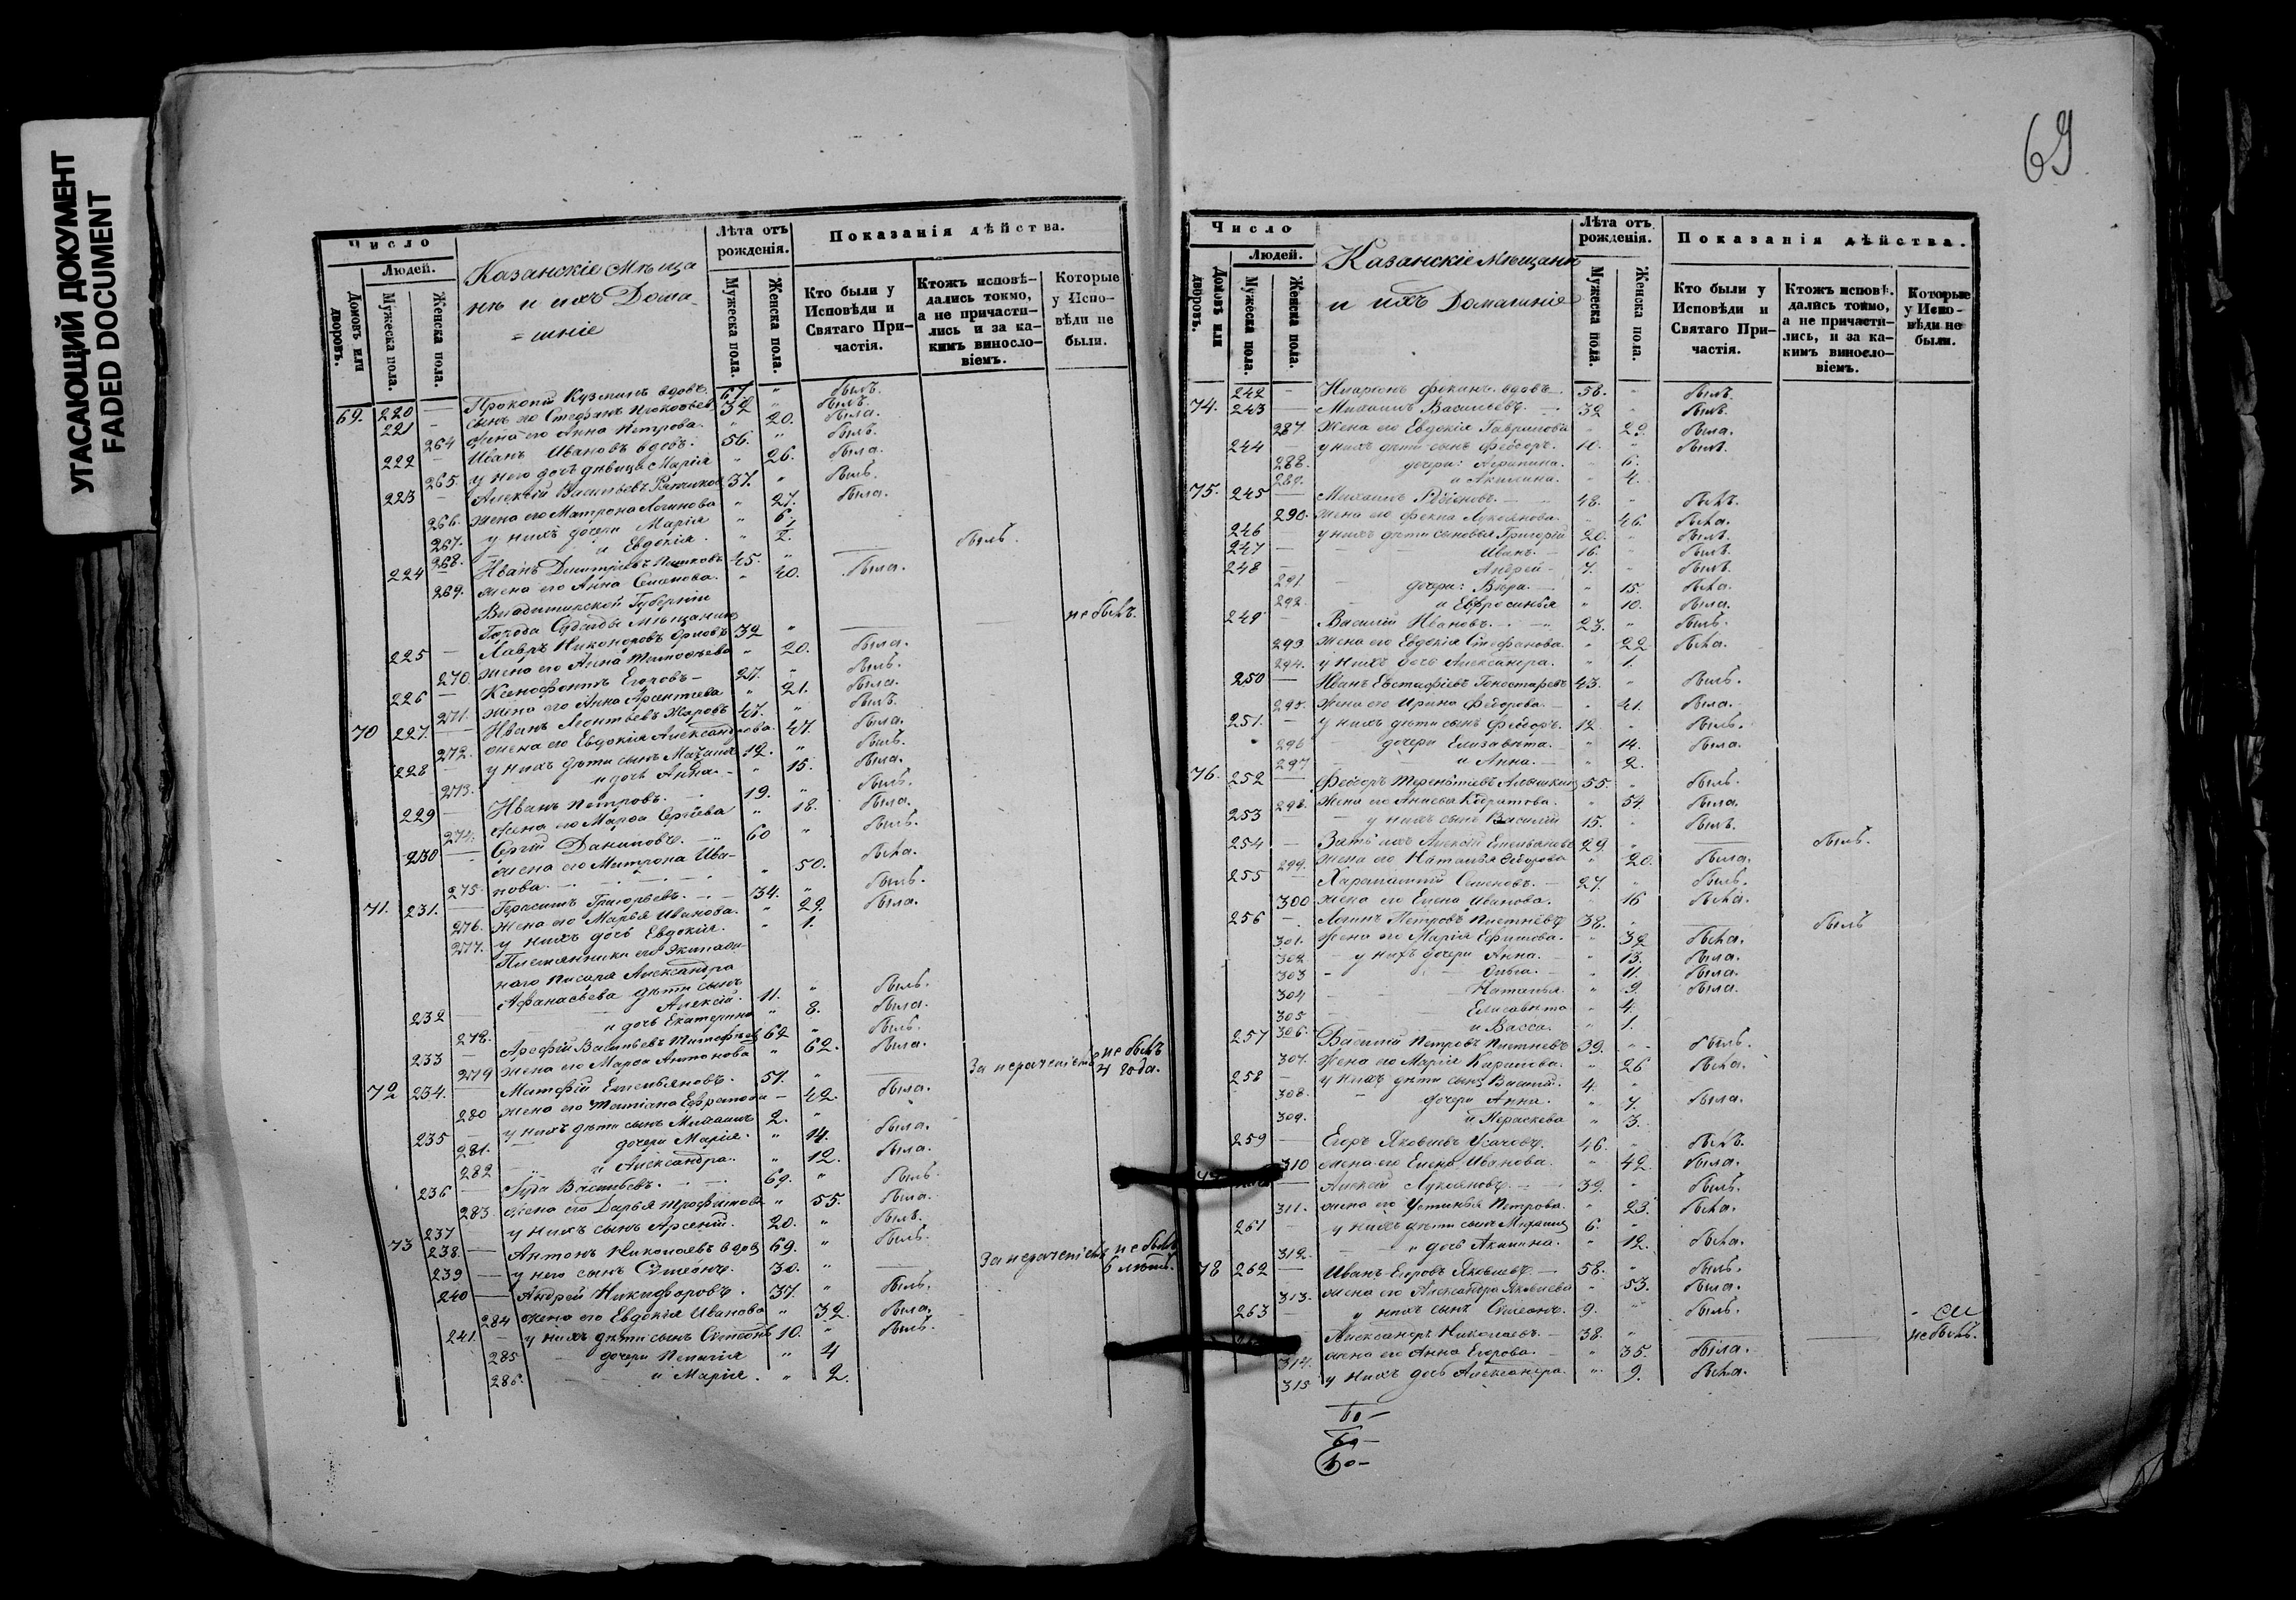 УГАСАЮЩИЙ ДОКУМЕНТ
FADED DOCUMENT
69
Число
Людей.
Домовъ или дворовъ.
Мужеска пола.
Женска пола.
Казанскіе Мѣща
не и ихъ Дома-
=шніе
Лѣта отъ рожденія.
Мужеска пола.
Женска пола.
Показанія дѣйства.
Кто были у Исповѣди и Святаго Причастія.
Ктожъ исповѣдались токмо, а не причастились и за какимъ винословіемъ.
Которые у Исповѣди не были.
69. 220 — Прокопій Кузминъ вдовъ 67. " былъ.
221 — сынъ его Стефанъ Прокопьев 32 " былъ.
264 жена его Анна Петрова. " 20. была.
222 — Иванъ Ивановъ вдовъ. 56. " былъ.
265. у него дочь дѣвица Марія " 26. была.
223 — Алексѣй Васильевъ 37. " былъ.
266. жена его Матрона Логинова " 27. была.
267. у нихъ дочери Марія " 6.
268. и Евдокія. " 2.
224 — Иванъ Дмитріевъ 45. " — былъ.
269. жена его Анна Семенова. " 40. была.
Владимирской Губерніи
Города Судогды мѣщанинъ
225 — Лавръ Никоноровъ Орловъ 32 " — — не былъ.
270. жена его Анна Тимофѣева " 20. была.
226 — Ксенофонтъ Егоровъ — 27. " былъ.
271. жена его Анна Арсентева " 21. была.
70 227. — Иванъ Леонтьевъ Жаровъ 47. " былъ.
272. жена его Евдокія Александрова. " 47. была.
228 — у нихъ дѣти сынъ Михаилъ 12. " былъ.
273. и дочь Анна. " 15. была.
229 — Иванъ Петровъ. 19. " былъ.
274. жена его Марѳа Сергѣева " 18. была.
230 — Сергѣй Даниловъ. 60 " былъ.
жена его Матрона Ива-
275. нова. " 50. была.
71. 231. — Герасимъ Григорьевъ. 34. " былъ.
276. жена его Марья Иванова. " 29. была.
277. у нихъ дочь Евдокія. " 1.
Племянники его Экипаж-
наго писаря Александра
Афанасьева дѣти сынъ
232 — Алексѣй. 11. " былъ.
278. и дочь Екатерина " 8. была.
233 — Арефій Васильевъ 62 " былъ.
279 жена его Марѳа Антонова " 62. была.
72 234. — Матфѣй Емельяновъ. 51. " — За нераченіемъ не былъ 4 года.
280 жена его Татіана Ефремова — 42. была.
235 — у нихъ дѣти сынъ Михаилъ 2. "
281. дочери Марія. " 14. была.
282 и Александра. " 12. была.
236 — Гурій Васильевъ. 69. " былъ.
283. жена его Дарья Трофимова " 55. была.
237 у нихъ сынъ Арсеній. 20. " былъ.
73 238. — Антонъ Николаевъ вдов 69. " былъ.
239 — у него сынъ Симеонъ. 30. " — За нераченіемъ не былъ 6 лѣтъ.
240 — Андрей Никифоровъ. 37. " былъ.
284 жена его Евдокія Иванова " 32. была.
241. — у нихъ дѣти сынъ Симеонъ 10. " былъ.
285 дочери Пелагія " 4
286. и Марія. " 2.
Число
Людей.
Домовъ или дворовъ.
Мужеска пола.
Женска пола.
Казанскіе Мѣщане
и ихъ Домашніе
Лѣта отъ рожденія.
Мужеска пола.
Женска пола.
Показанія дѣйства.
Кто были у Исповѣди и Святаго Причастія.
Ктожъ исповѣдались токмо, а не причастились, и за какимъ винословіемъ.
Которые у Исповѣди не были.
242 — вдовъ — 58. " былъ.
74. 243 — Михаилъ Васильевъ. 32 " былъ.
287. Жена его Евдокія Гаврилова " 29. была.
244 — у нихъ дѣти сынъ Ѳедоръ. 10. " былъ.
288. дочери: Агрипина. " 6.
289. и Акилина. " 4.
75. 245 — Михаилъ 48. " былъ.
290. жена его Ѳекла Лукоянова. " 46. была.
246 — у нихъ дѣти сыновья Григорій 20. " былъ.
247 — Иванъ. 16. " былъ.
248 — Андрей 7. " былъ.
291. дочери: Вѣра. " 15. была.
292. и Евфросинья " 10. была.
249 — Василій Ивановъ. 23. " былъ.
293 жена его Евдокія Стефанова. " 22 была.
294. у нихъ дочь Александра. " 1.
250 — Иванъ Евстафіевъ Гоностаревъ 43. " былъ.
295. жена его Ирина Ѳедорова. " 41. была.
251. — у нихъ дѣти сынъ Ѳедоръ. 12. " былъ.
296 дочери Елизавета. " 14. была.
297 и Анна. " 2.
76. 252 — Ѳедоръ Терентіевъ 55. " былъ.
298. жена его Анисья " 54. была.
253 у нихъ сынъ Василій 15. " былъ.
254 — Зять ихъ Алексѣй Емельяновъ 29. " — былъ.
299. жена его Наталья Ѳедорова " 20. была.
255 — Харлампій Семеновъ. 27. " былъ.
300 жена его Елена Иванова. " 16 была.
256 — Логинъ Петровъ Плетневъ 38. " — былъ
301. жена его Марія Ефимова. " 32 была.
302 у нихъ дочери Анна. " 13. была.
303 Ольга. " 11. была.
304 Наталья. " 9. была.
305 Елисавета " 4.
306. и Васса. " 1.
257 Василій Петровъ Плетневъ 39. " былъ.
307. жена его Марія Карпова. " 26 была.
258 — у нихъ дѣти сынъ Василій. 4. "
308. дочери Анна. " 7. была.
309. и Параскева " 3.
259 — Егоръ Яковлевъ Усачовъ. 46. " былъ.
310 жена его Елена Иванова. " 42. была.
— Алексѣй Лукояновъ. 39. " былъ.
311. жена его Устинья Петрова. " 23. была.
261 — у нихъ дѣти сынъ Михаилъ 6. "
312. и дочь Акилина. " 12. была.
78 262 — Иванъ Егоровъ Яковлевъ. 58. " былъ.
313. жена его Александра Яковлева " 53. была.
263 — у нихъ сынъ Симеонъ. 9. " былъ.
Александръ Николаевъ. 38. " — — не былъ.
314. жена его Анна Егорова. " 35. была.
315 у нихъ дочь Александра. " 9. была.